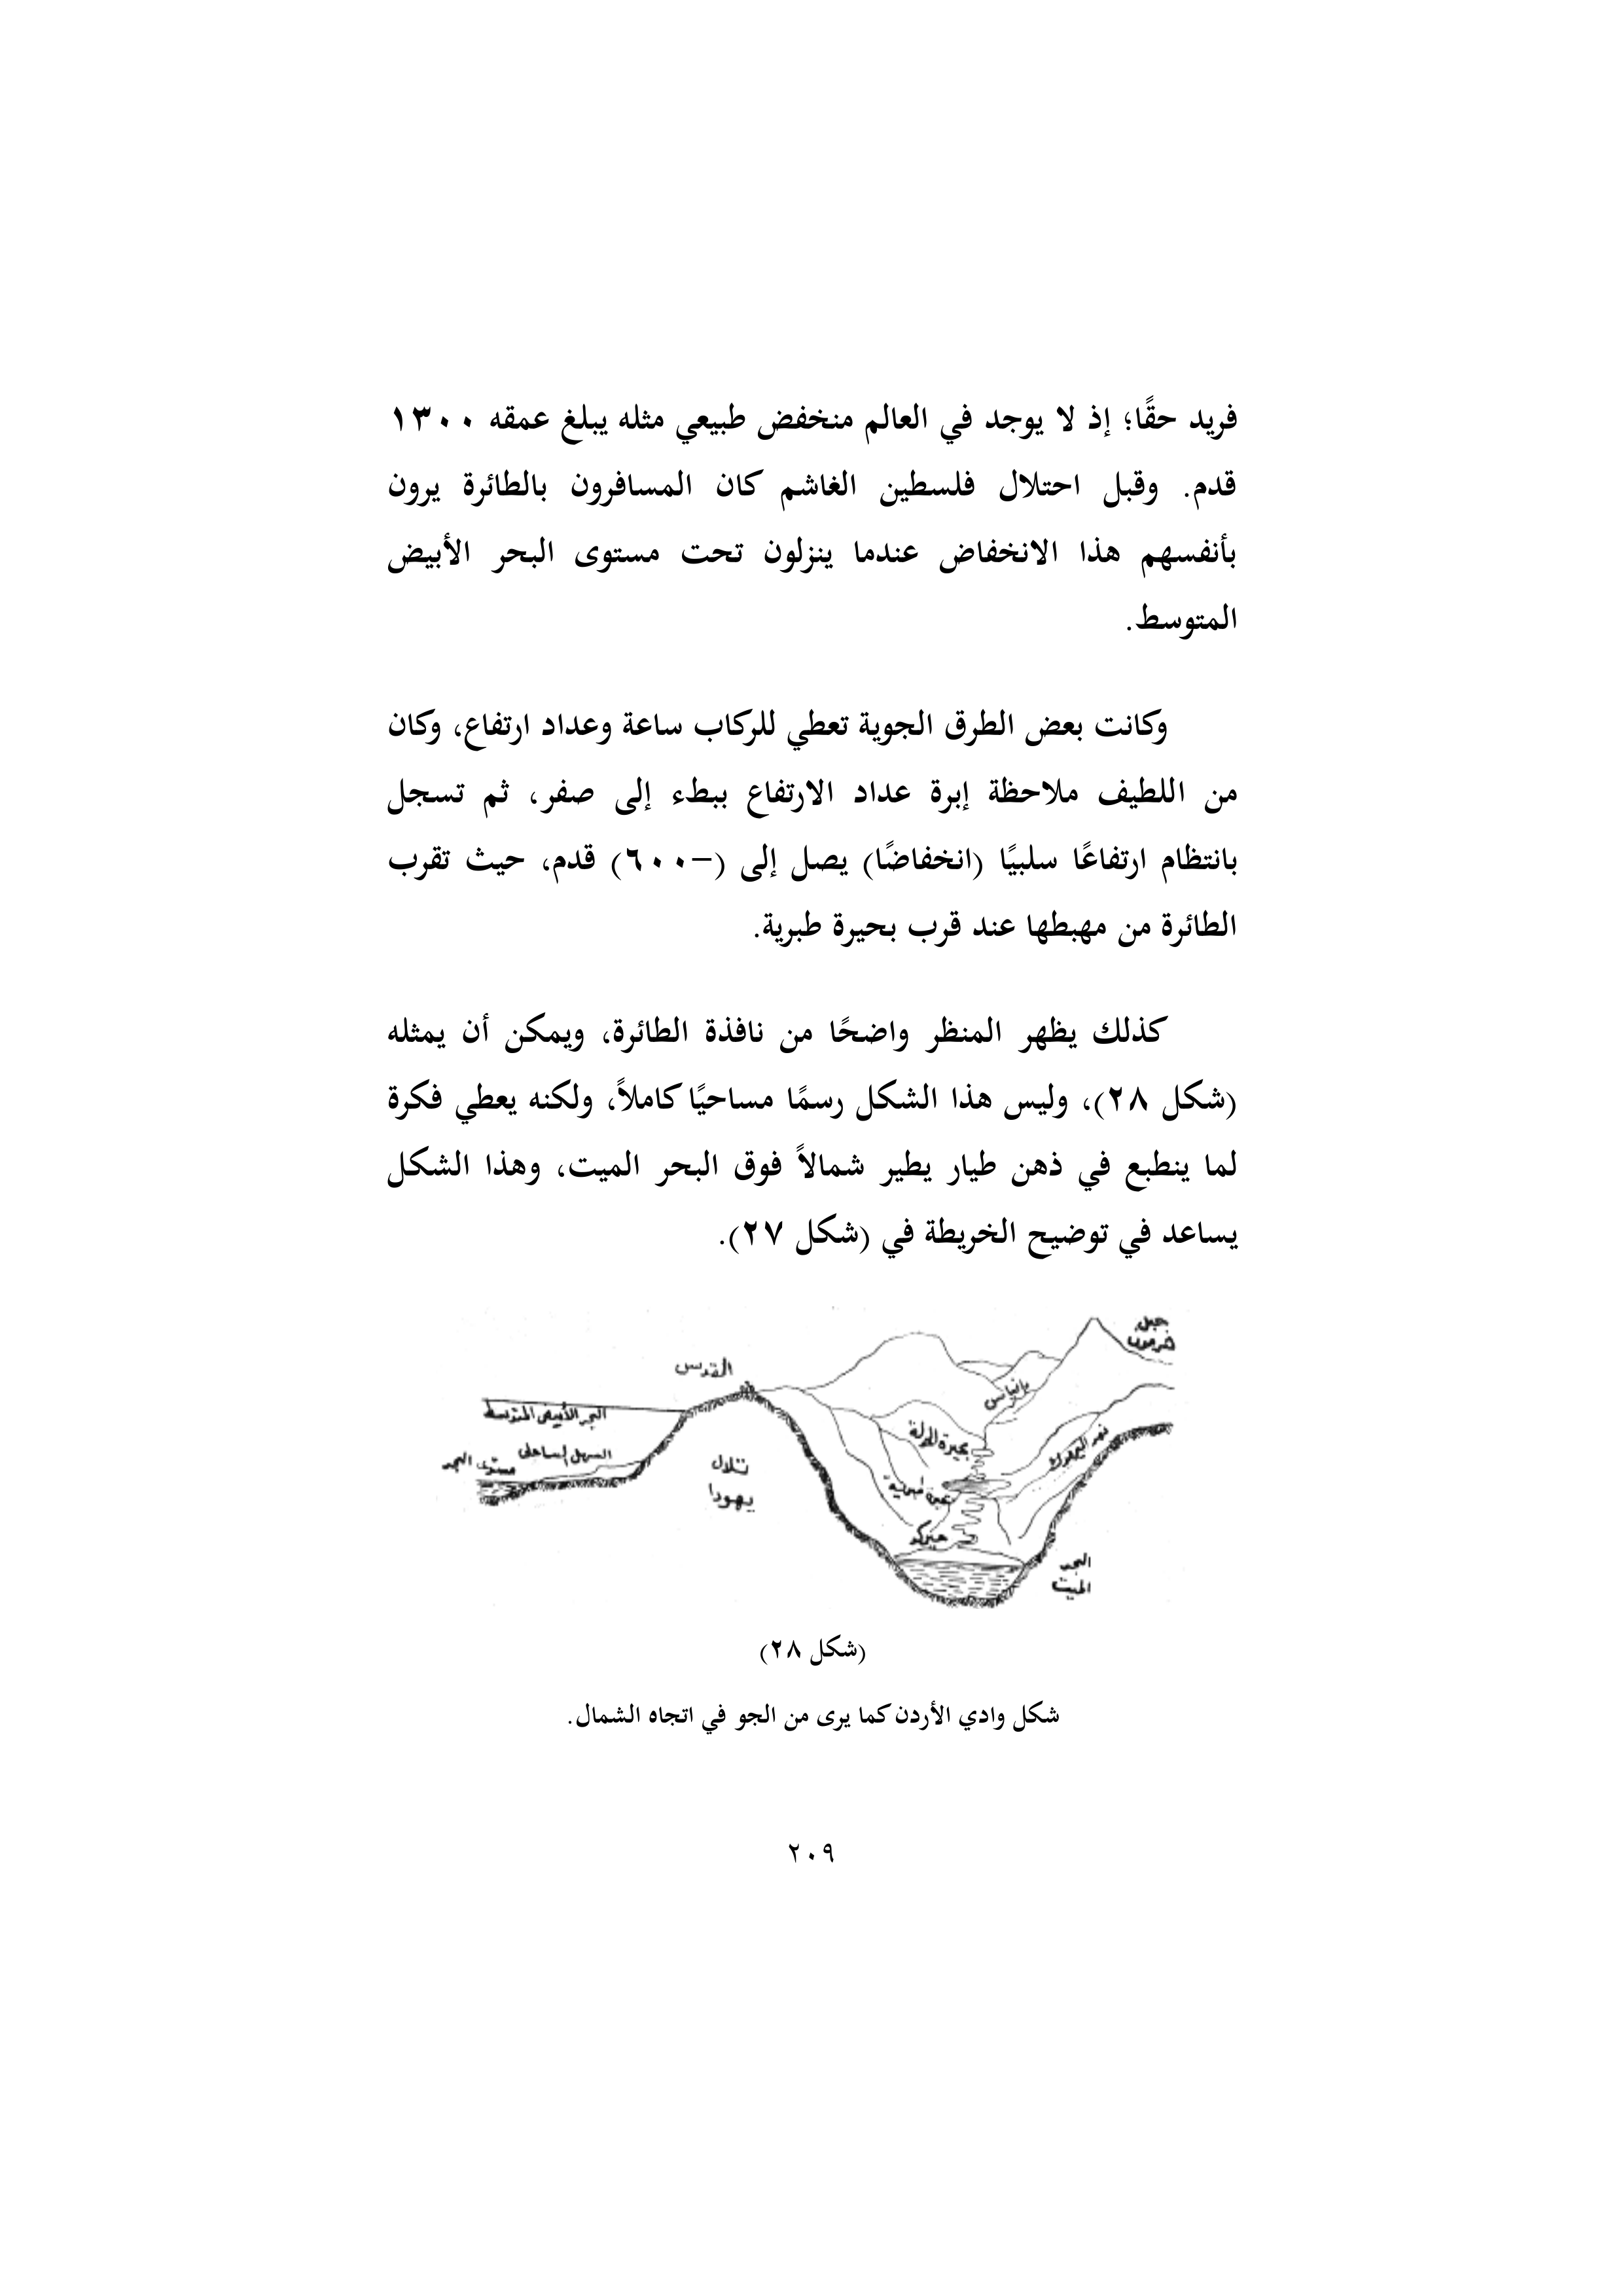 فريد حقًا؛ إذ لا يوجد في العالم منخفض طبيعي مثله يبلغ عمقه ١٣٠٠
قدم. وقبل احتلال فلسطين الغاشم كان المسافرون بالطائرة يرون
بأنفسهم هذا الانخفاض عندما ينزلون تحت مستوى البحر الأبيض
المتوسط.
وكانت بعض الطرق الجوية تعطي للركاب ساعة وعداد ارتفاع، وكان
من اللطيف ملاحظة إبرة عداد الارتفاع ببطء إلى صفر، ثم تسجل
بانتظام ارتفاعًا سلبيًا (انخفاضًا) يصل إلى (–٦٠٠) قدم، حيث تقرب
الطائرة من مهبطها عند قرب بحيرة طبرية.
كذلك يظهر المنظر واضحًا من نافذة الطائرة، ويمكن أن يمثله
(شكل ٢٨)، وليس هذا الشكل رسمًا مساحيًا كاملاً، ولكنه يعطي فكرة
لما ينطبع في ذهن طيار يطير شمالاً فوق البحر الميت، وهذا الشكل
يساعد في توضيح الخريطة في (شكل ٢٧).
جبل
القدس
بانياس
البحر الأبيض المتوسط
نهر اليرموك
السهل الساحلي
مستوى البحر
تلال
يهودا
البحر
الميت
(شكل ٢٨)
شكل وادي الأردن كما يرى من الجو في اتجاه الشمال.
٢٠٩